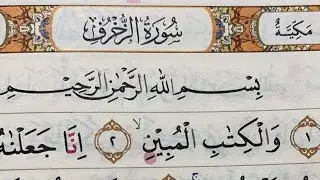 سُورَةُ الزُّخْرُفِ مَكِّيَّةٌ
بِسْمِ اللّٰهِ الرَّحْمٰنِ الرَّحِيْمِ
١ وَالْكِتٰبِ الْمُبِيْنِ ٢ اِنَّا جَعَلْنٰهُ